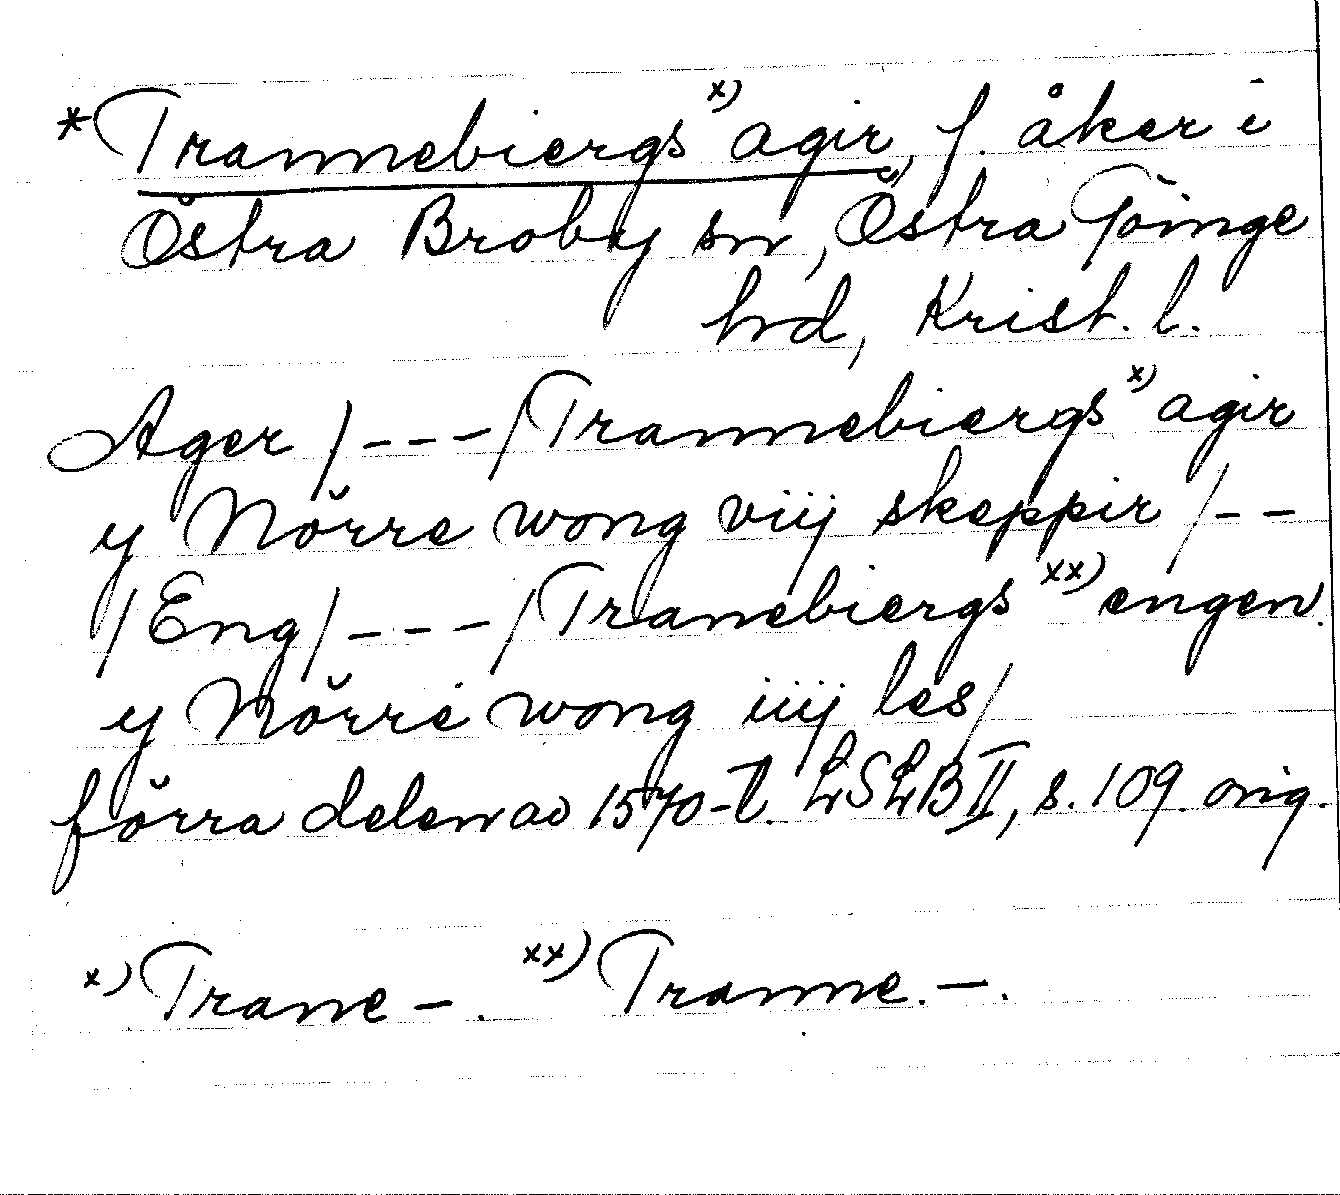 *Trannebiergs x) agir, f. åker i
Östra Broby sn, Östra Göinge
hd, Krist. l.
Ager /---/ Trannebiergs x) agir
y Nörre wong viij skeppir /--
/Eng/---/ Tranebiergs xx) engen
y Nörre wong iiij les/
förra delen av 1570-t. LSLB II, s. 109. orig.
x) Trane-. xx) Tranne.-.